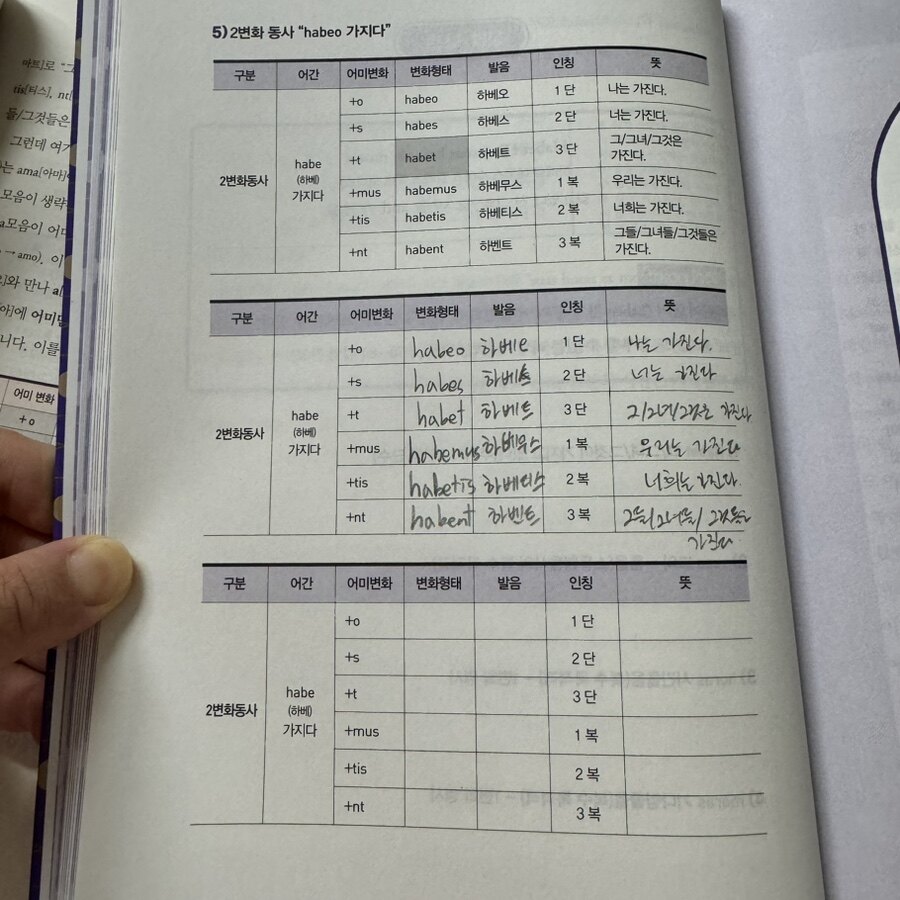 아트]로 "그
tis[티스], nt[
들/그것들은
그런데 여기
는 ama[아마]
모음이 생략
a모음이 어
→ amo). 이
]와 만나 a[
[아]에 어미
니다. 이를
어미 변화
+ o
5) 2변화 동사 "habeo 가지다"
구분 어간 어미변화 변화형태 발음 인칭 뜻
+o habeo 하베오 1 단 나는 가진다.
+s habes 하베스 2 단 너는 가진다.
2변화동사 habe (하베) 가지다 +t habet 하베트 3 단 그/그녀/그것은 가진다.
+mus habemus 하베무스 1 복 우리는 가진다.
+tis habetis 하베티스 2 복 너희는 가진다.
+nt habent 하벤트 3 복 그들/그녀들/그것들은 가진다.
구분 어간 어미변화 변화형태 발음 인칭 뜻
+o habeo 1 단 나는 가진다.
+s habes 하베스 2 단 너는 가진다
2변화동사 habe (하베) 가지다 +t habet 하베트 3 단 그/그녀/그것은 가진다
+mus habemus 하베무스 1 복 우리는 가진다
+tis habetis 하베티스 2 복 너희는 가진다.
+nt habent 하벤트 3 복 그들/그녀들/그것들은
가진다
구분 어간 어미변화 변화형태 발음 인칭 뜻
+o 1 단
+s 2 단
2변화동사 habe (하베) 가지다 +t 3 단
+mus 1 복
+tis 2 복
+nt 3 복